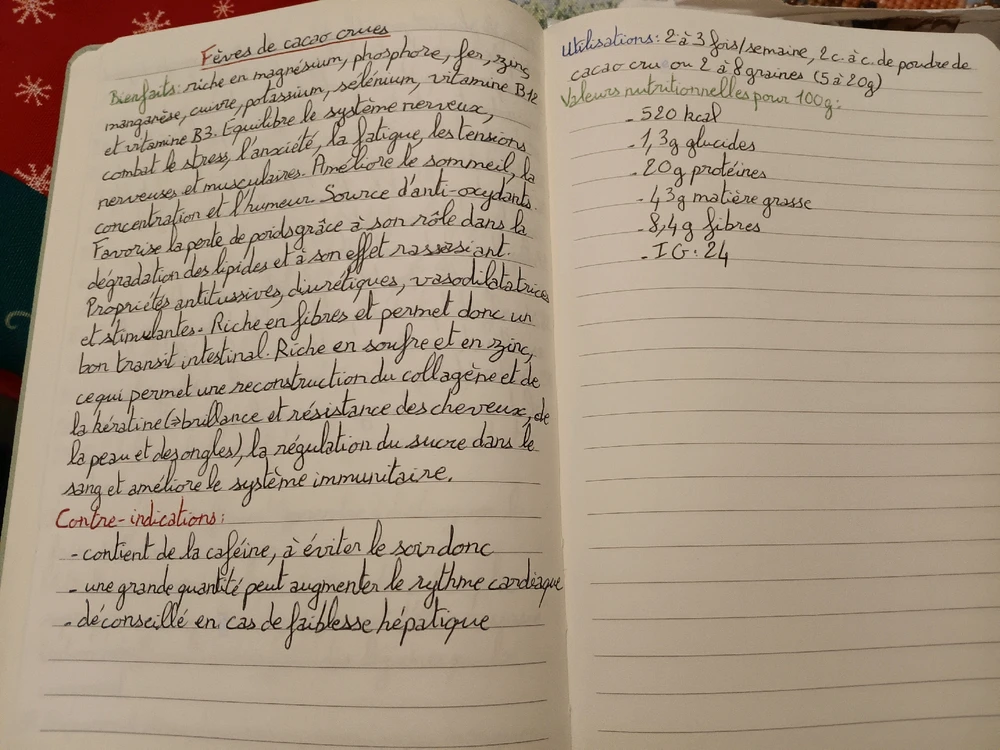 Fèves de cacao crues
Bienfaits: riche en magnésium, phosphore, fer, zinc,
manganèse, cuivre, potassium, sélénium, vitamine B12
et vitamine B3. Équilibre le système nerveux,
combat le stress, l'anxiété, la fatigue, les tensions
nerveuses et musculaires. Améliore le sommeil, la
concentration et l'humeur. Source d'anti-oxydants.
Favorise la perte de poids grâce à son rôle dans la
dégradation des lipides et à son effet rassasiant.
Propriétés antitussives, diurétiques, vasodilatatrices
et stimulantes. Riche en fibres et permet donc un
bon transit intestinal. Riche en soufre et en zinc,
ce qui permet une reconstruction du collagène et de
la kératine (⇒ brillance et résistance des cheveux, de
la peau et des ongles), la régulation du sucre dans le
sang et améliore le système immunitaire.
Contre-indications:
- contient de la caféine, à éviter le soir donc
- une grande quantité peut augmenter le rythme cardiaque
- déconseillé en cas de faiblesse hépatique
Utilisations: 2 à 3 fois/semaine, 2 c. à c. de poudre de
cacao cru ou 2 à 8 graines (5 à 20g)
Valeurs nutritionnelles pour 100g:
- 520 kcal
- 1,3g glucides
- 20g protéines
- 43g matière grasse
- 8,4g fibres
- IG: 24